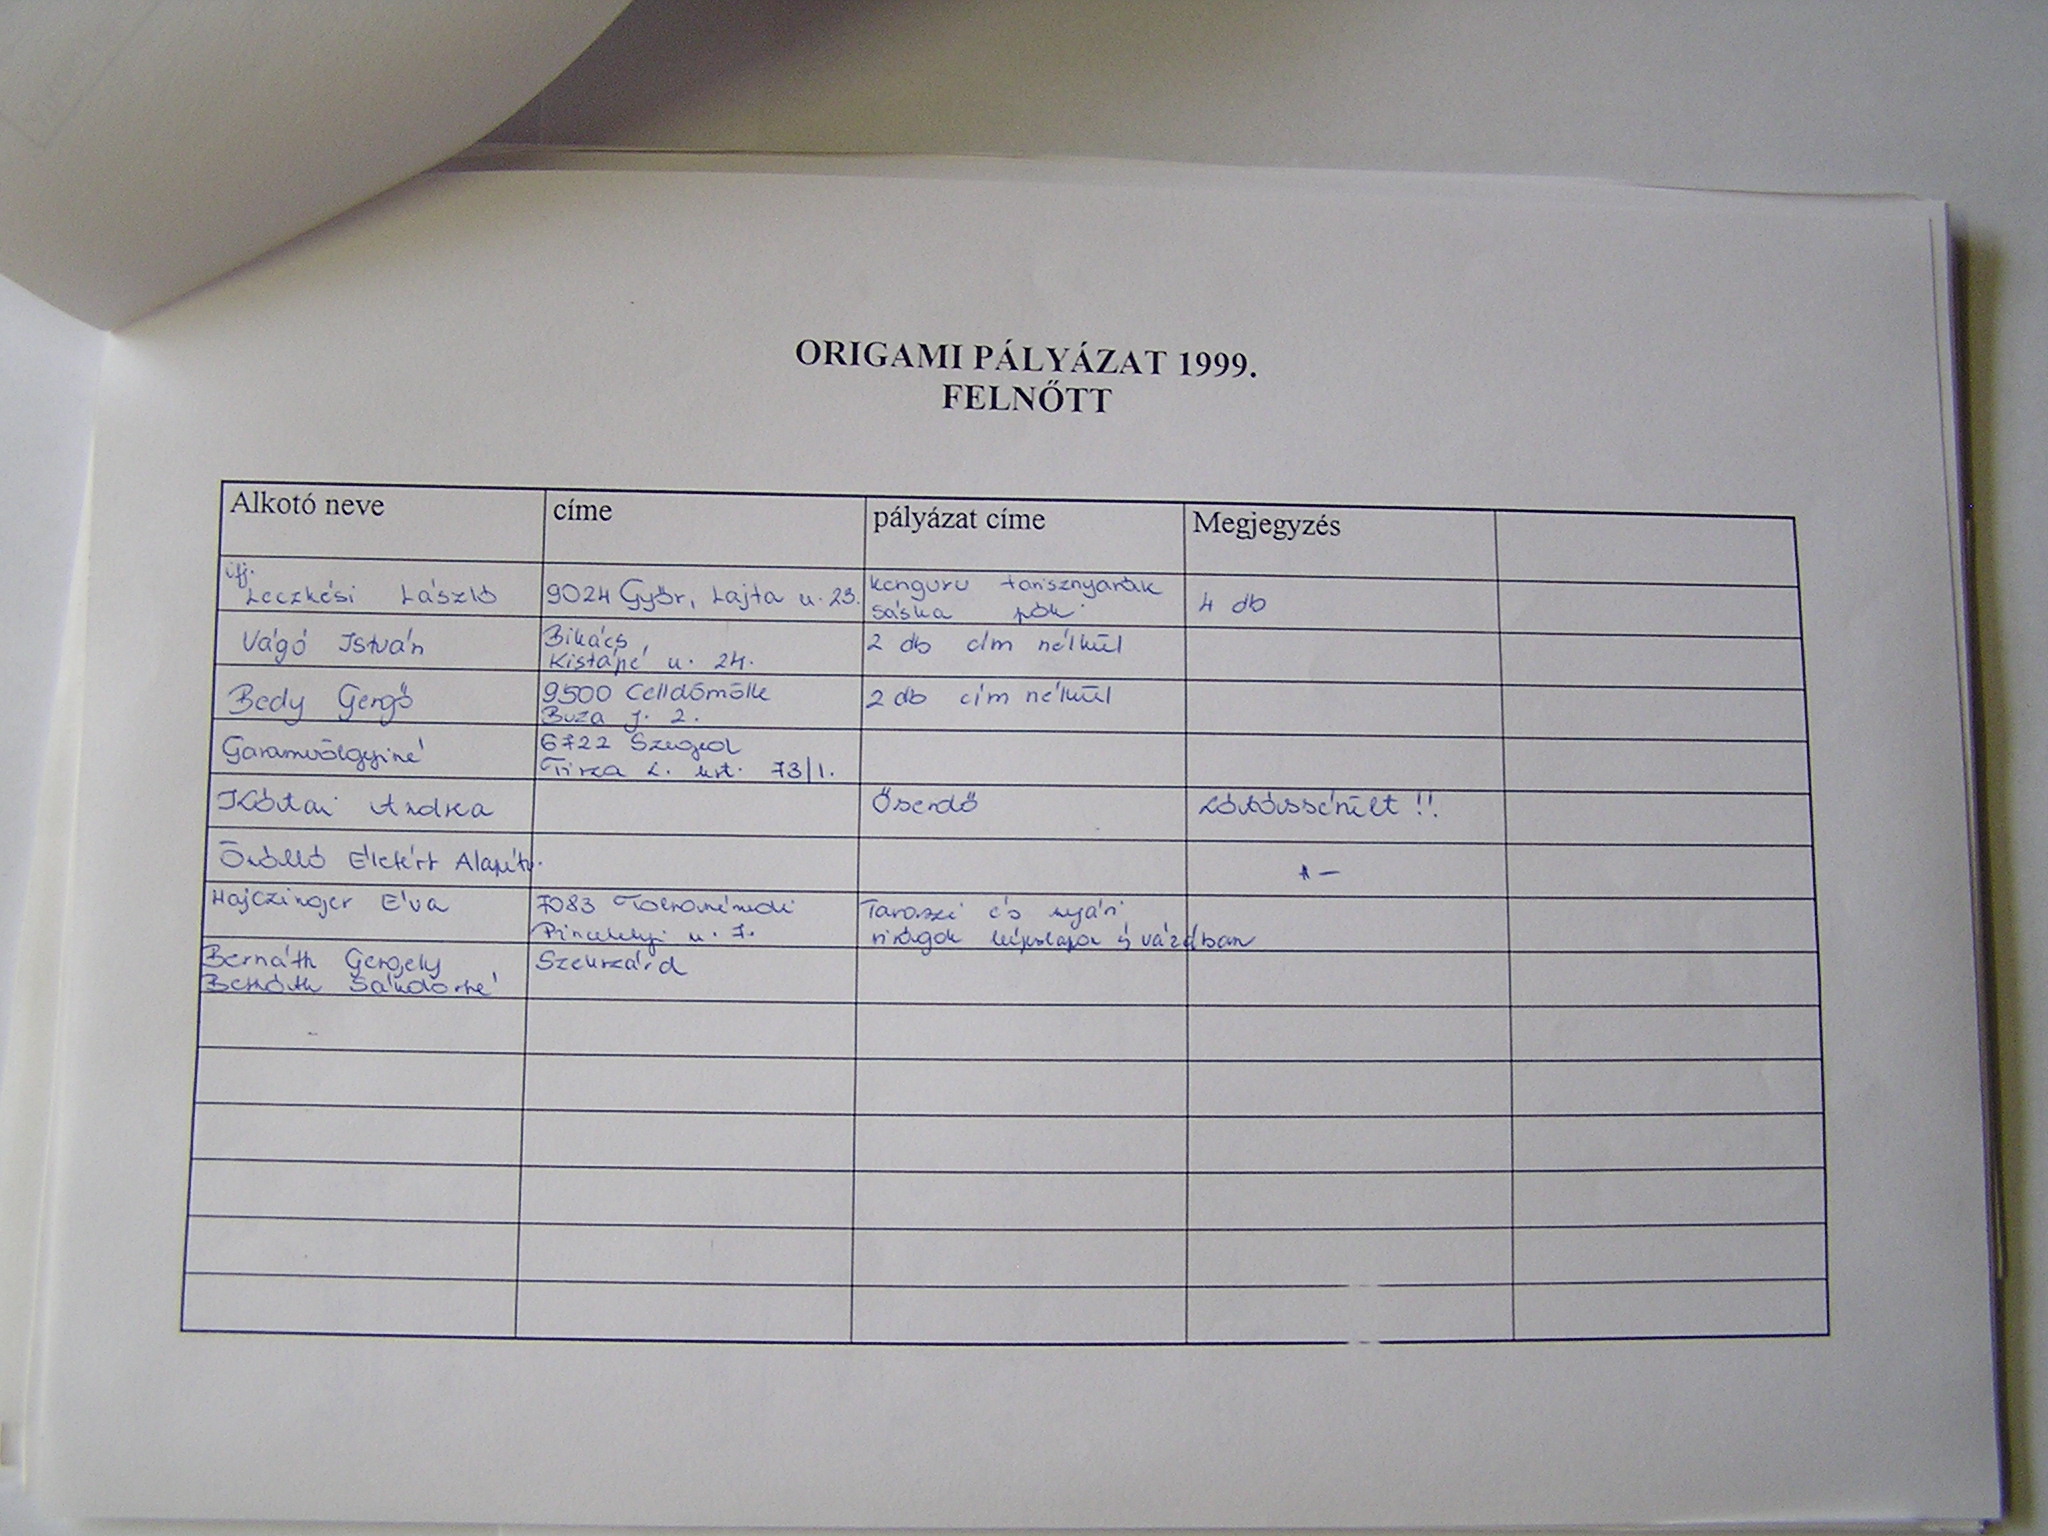 ORIGAMI PÁLYÁZAT 1999.
FELNŐTT
Alkotó neve címe pályázat címe Megjegyzés
ifj. Leczkési László 9024 Győr, Lajta u. 23. kenguru
sáska pók 4 db
Vágó István Bikács, 2 db cím nélkül
Kistápé u. 24.
Bedy Gergő 9500 Celldömölk 2 db cím nélkül
Buza j. 2.
Garamvölgyiné 6722 Szeged
Tisza L. krt. 73/1.
Kótai Andrea Őserdő Látássérült !!
Önálló Életért Alapítv. -"-
Hajczinger Éva 7083 Tolnanémedi Tavaszi és nyári
Pincehelyi u. 7. virágok képslapon és vázában
Bernáth Gergely Szekszárd
Bernáth Sándorné